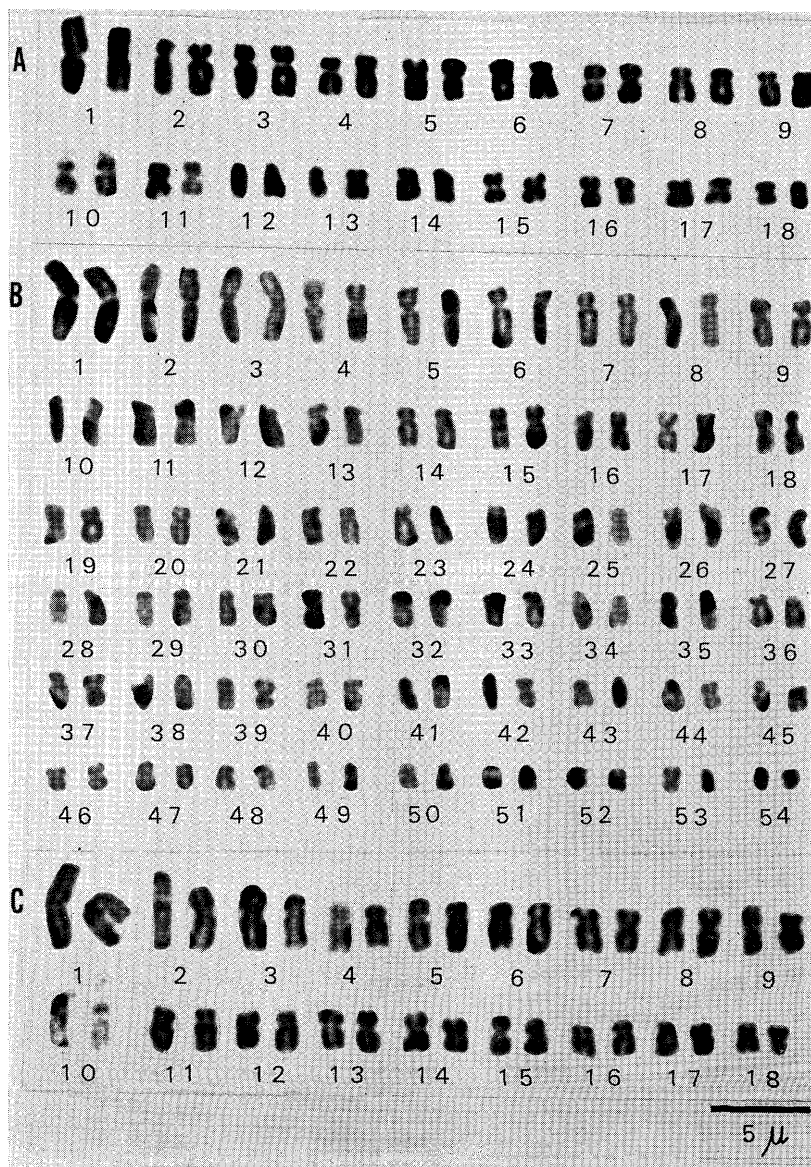 A
1 2 3 4 5 6 7 8 9
10 11 12 13 14 15 16 17 18
B
1 2 3 4 5 6 7 8 9
10 11 12 13 14 15 16 17 18
19 20 21 22 23 24 25 26 27
28 29 30 31 32 33 34 35 36
37 38 39 40 41 42 43 44 45
46 47 48 49 50 51 52 53 54
C
1 2 3 4 5 6 7 8 9
10 11 12 13 14 15 16 17 18
5 μ